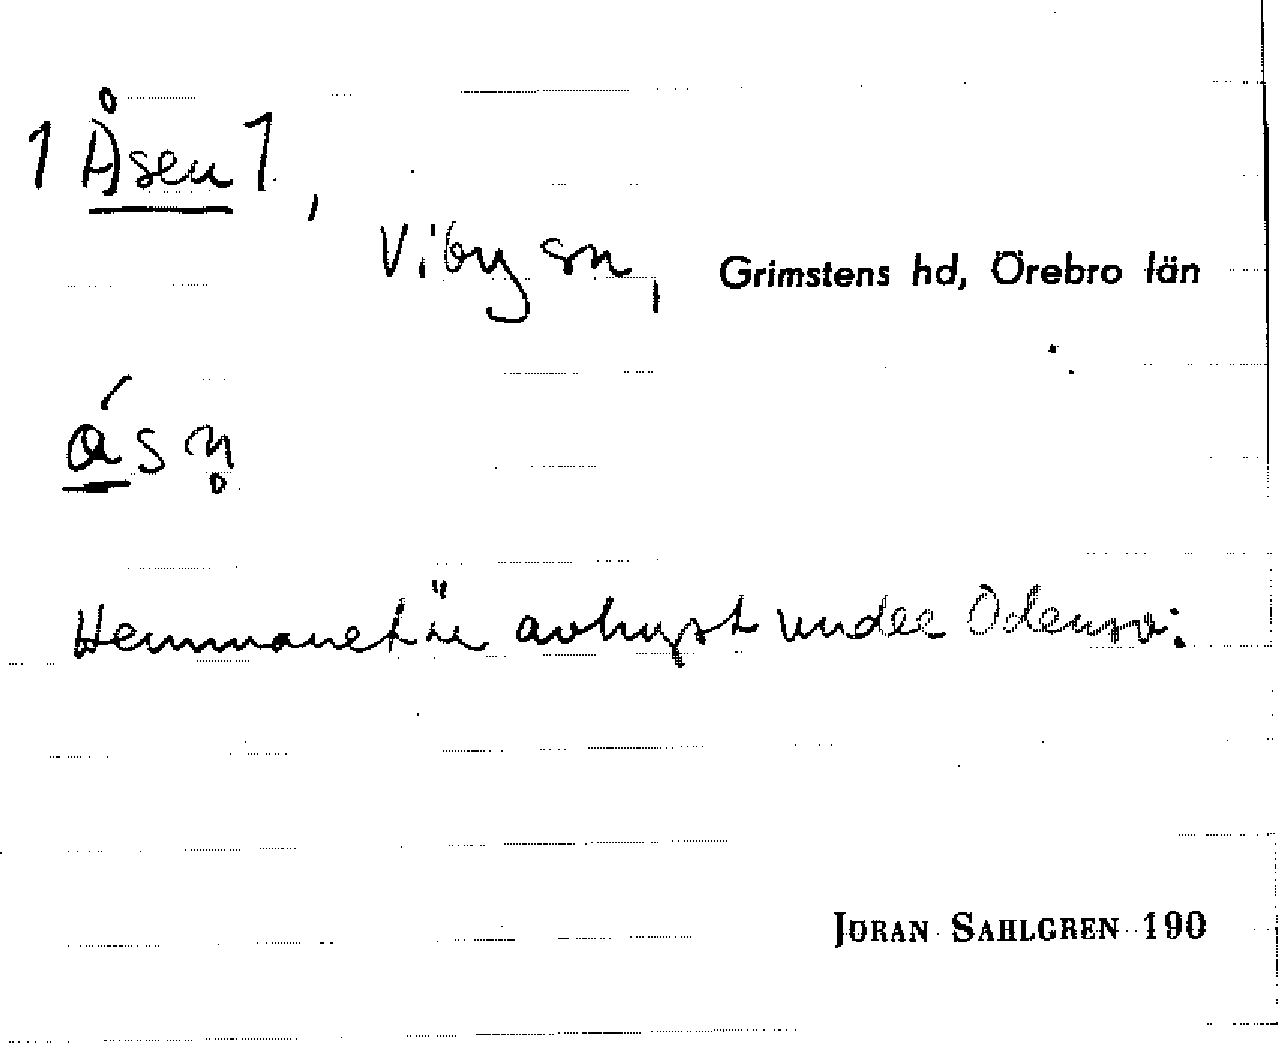 1 Åsen 1,
Viby sn, Grimstens hd, Örebro län
ásn̥
Hemmanet är avhyst under Odensv.
JÖRAN SAHLGREN 190